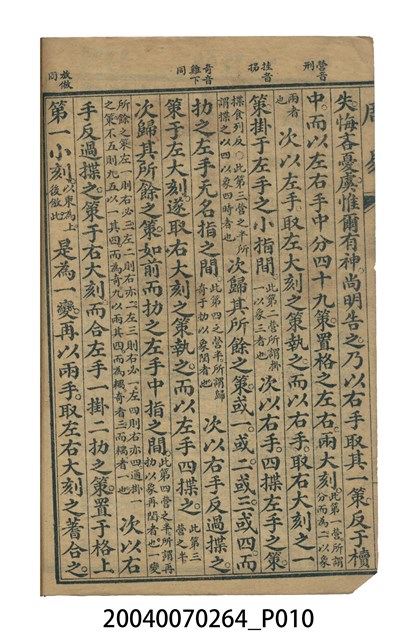 營音刑
奇音雞下同
放倣同
周易
失悔吝憂虞惟爾有神尚明告之乃以右手取其一策反于櫝
中而以左右手中分四十九策置格之左右兩大刻此第一營所謂分而為二以象
兩者也次以左手取左大刻之策執之而以右手取右大刻之一
策掛于左手之小指間此第二營所謂掛一以象三者也次以右手四揲左手之策
揲食列反此第三營之半所謂揲之以四以象四時者也次歸其所餘之策或一或二或三或四而
扐之左手無名指之間此第四營之半所謂歸奇于扐以象閏者也次以右手反過揲之
策于左大刻遂取右大刻之策執之而以左手四揲之此第三營之半
次歸其所餘之策如前而扐之左手中指之間此第四營之半所謂再扐以象再閏者也一變
所餘之策左一則右必三左二則右亦二左三則右必一左四則右亦四通掛一之策不五則九五以一其四而為奇九以兩其四而為耦奇者三而耦者一也次以右
手反過揲之策于右大刻而合左手一掛二扐之策置于格上
第一小刻以東為上後倣此是為一變再以兩手取左右大刻之蓍合之
20040070264_P010